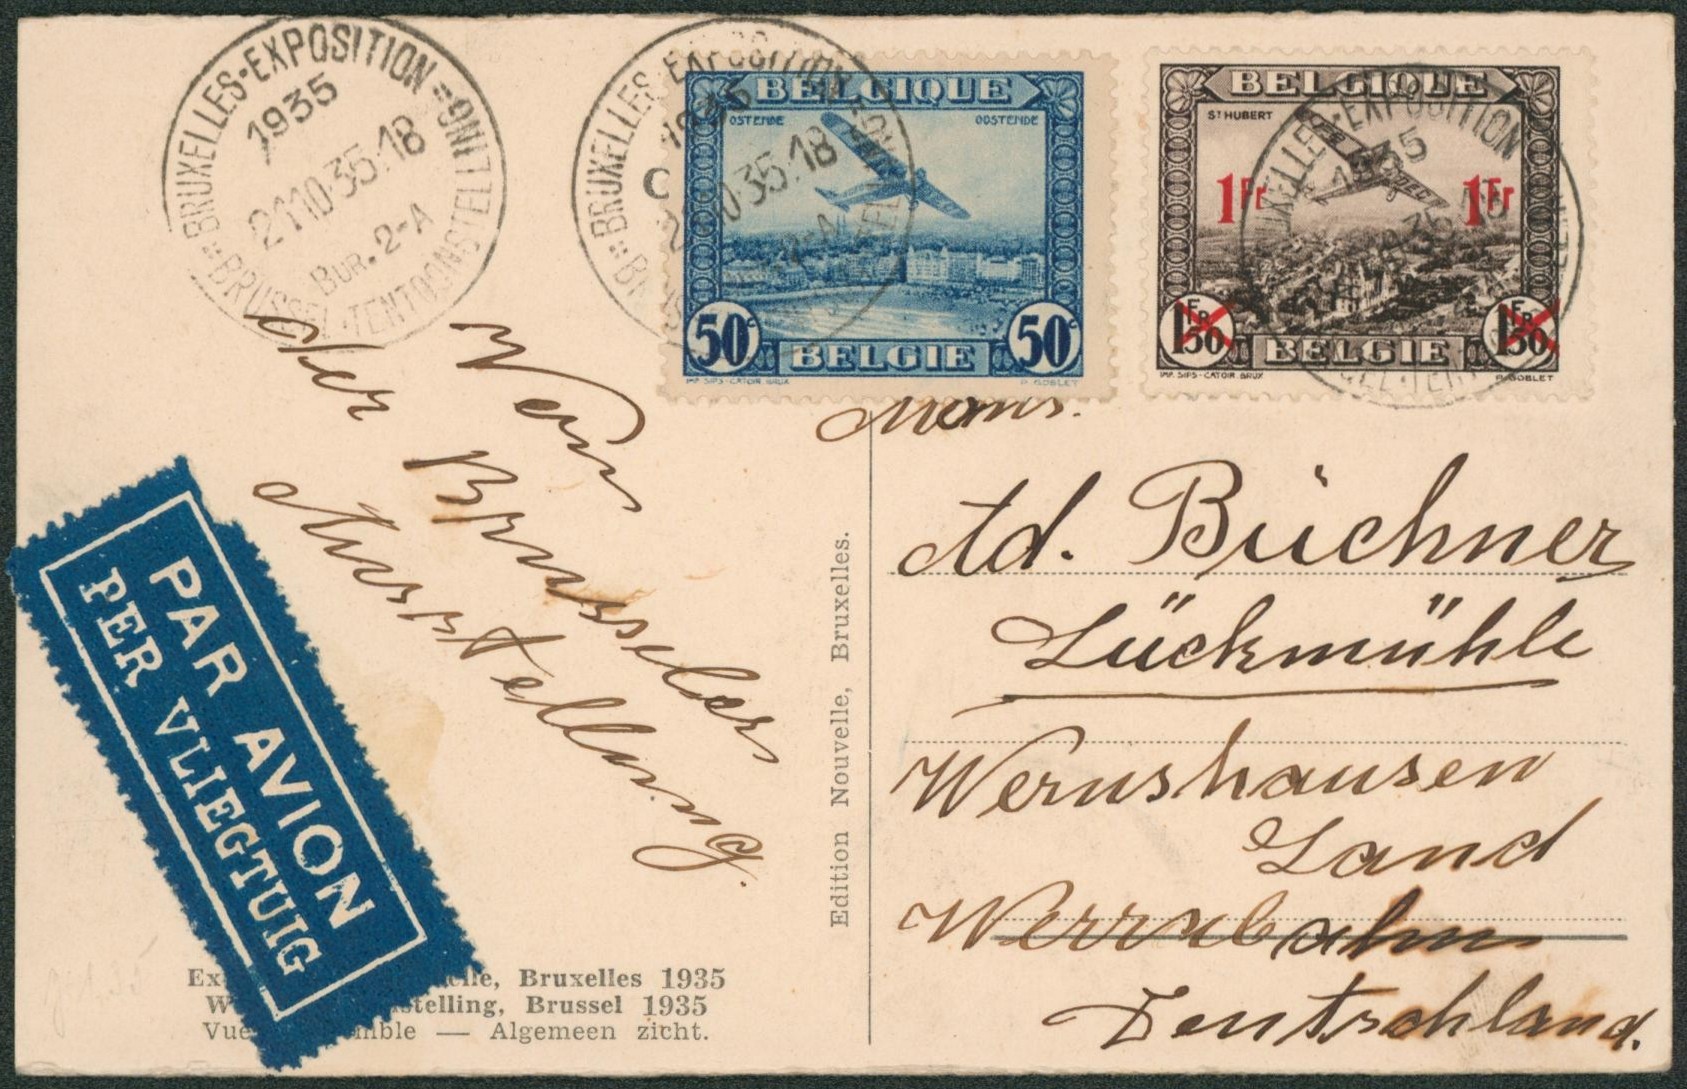 BRUXELLES-EXPOSITION
1935
21 10·35·18
BUR. 2-A
TENTOONSTELLING
BRUXELLES EXPOSITION
1935
35·18
BELGIQUE
OSTENDE OOSTENDE
50c 50c
BELGIE
IMP. SIPS-CATOIR BRUX P. GOBLET
BELGIQUE
ST HUBERT
1Fr 1Fr
1FR50 1FR50
BELGIE
IMP. SIPS-CATOIR BRUX P. GOBLET
EXPOSITION
1935
Von
der Brüsseler
Ausstellung.
PAR AVION
PER VLIEGTUIG
Mons.
Ad. Büchner
Lückmühle
Wernshausen
Land
Werrabahn
Deutschland.
Edition Nouvelle, Bruxelles.
Ex elle, Bruxelles 1935
W stelling, Brussel 1935
Vue mble — Algemeen zicht.